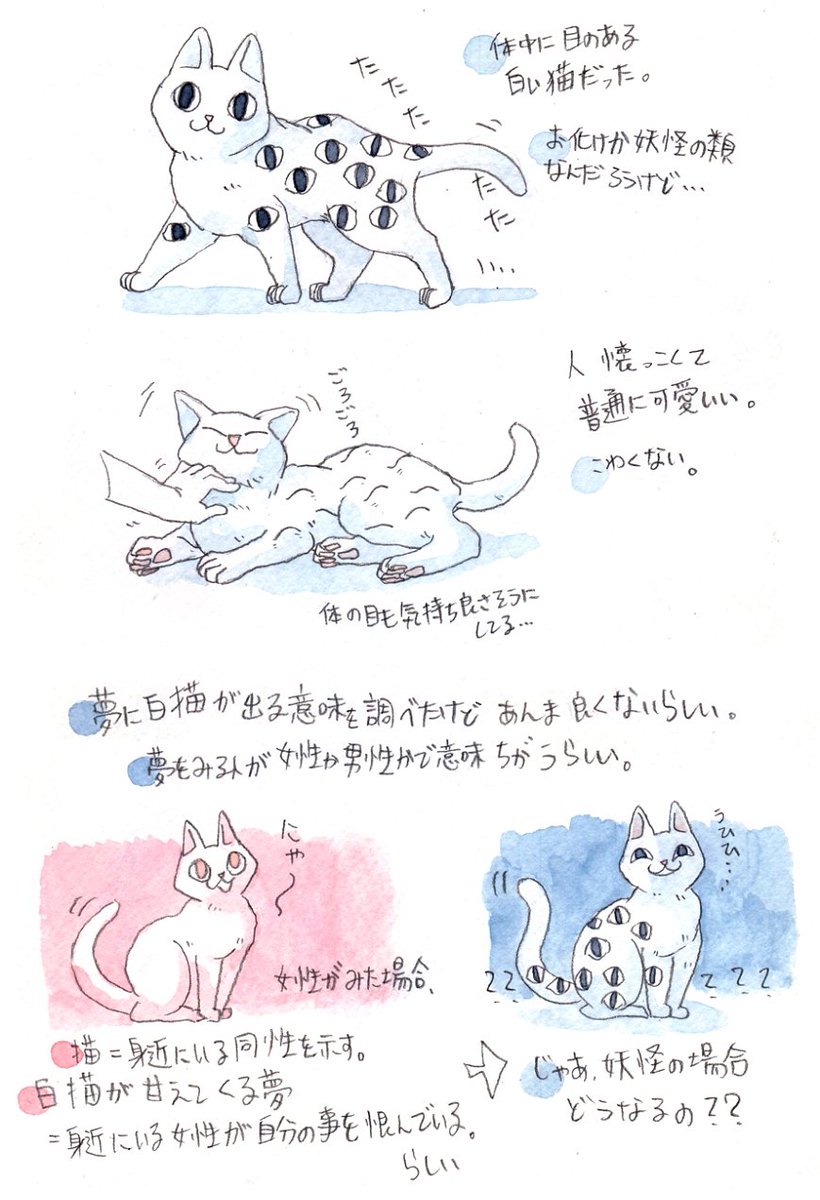 体中に目のある
白い猫だった。
たたた
お化けか妖怪の類
なんだろうけど…
たた
人懐っこくて
普通に可愛いい。
こわくない。
ごろごろ
体の目も気持ち良さそうに
してる…
夢に白猫が出る意味を調べたけど あんま良くないらしい。
夢をみる人が女性か男性かで意味ちがうらしい。
にゃ〜
女性がみた場合、
猫=身近にいる同性を示す。
白猫が甘えてくる夢
=身近にいる女性が自分の事を恨んでいる。
らしい
うひひ…
???
???
じゃあ、妖怪の場合
どうなるの??